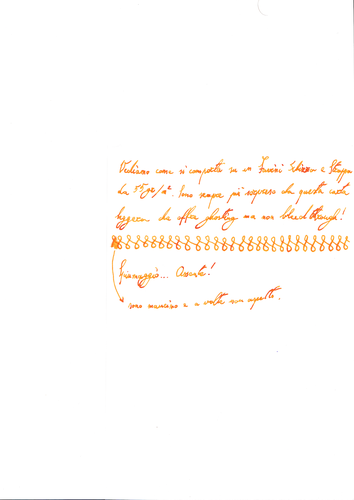 Vediamo come si comporta su un Favini Schizza e Strappa
da 55 gr/m². Sono sempre più sorpreso da questa carta
leggera che offre ghosting ma non bleedthrough!
Spianaggio... Arancio!
sono mancino e a volte non aspetto.